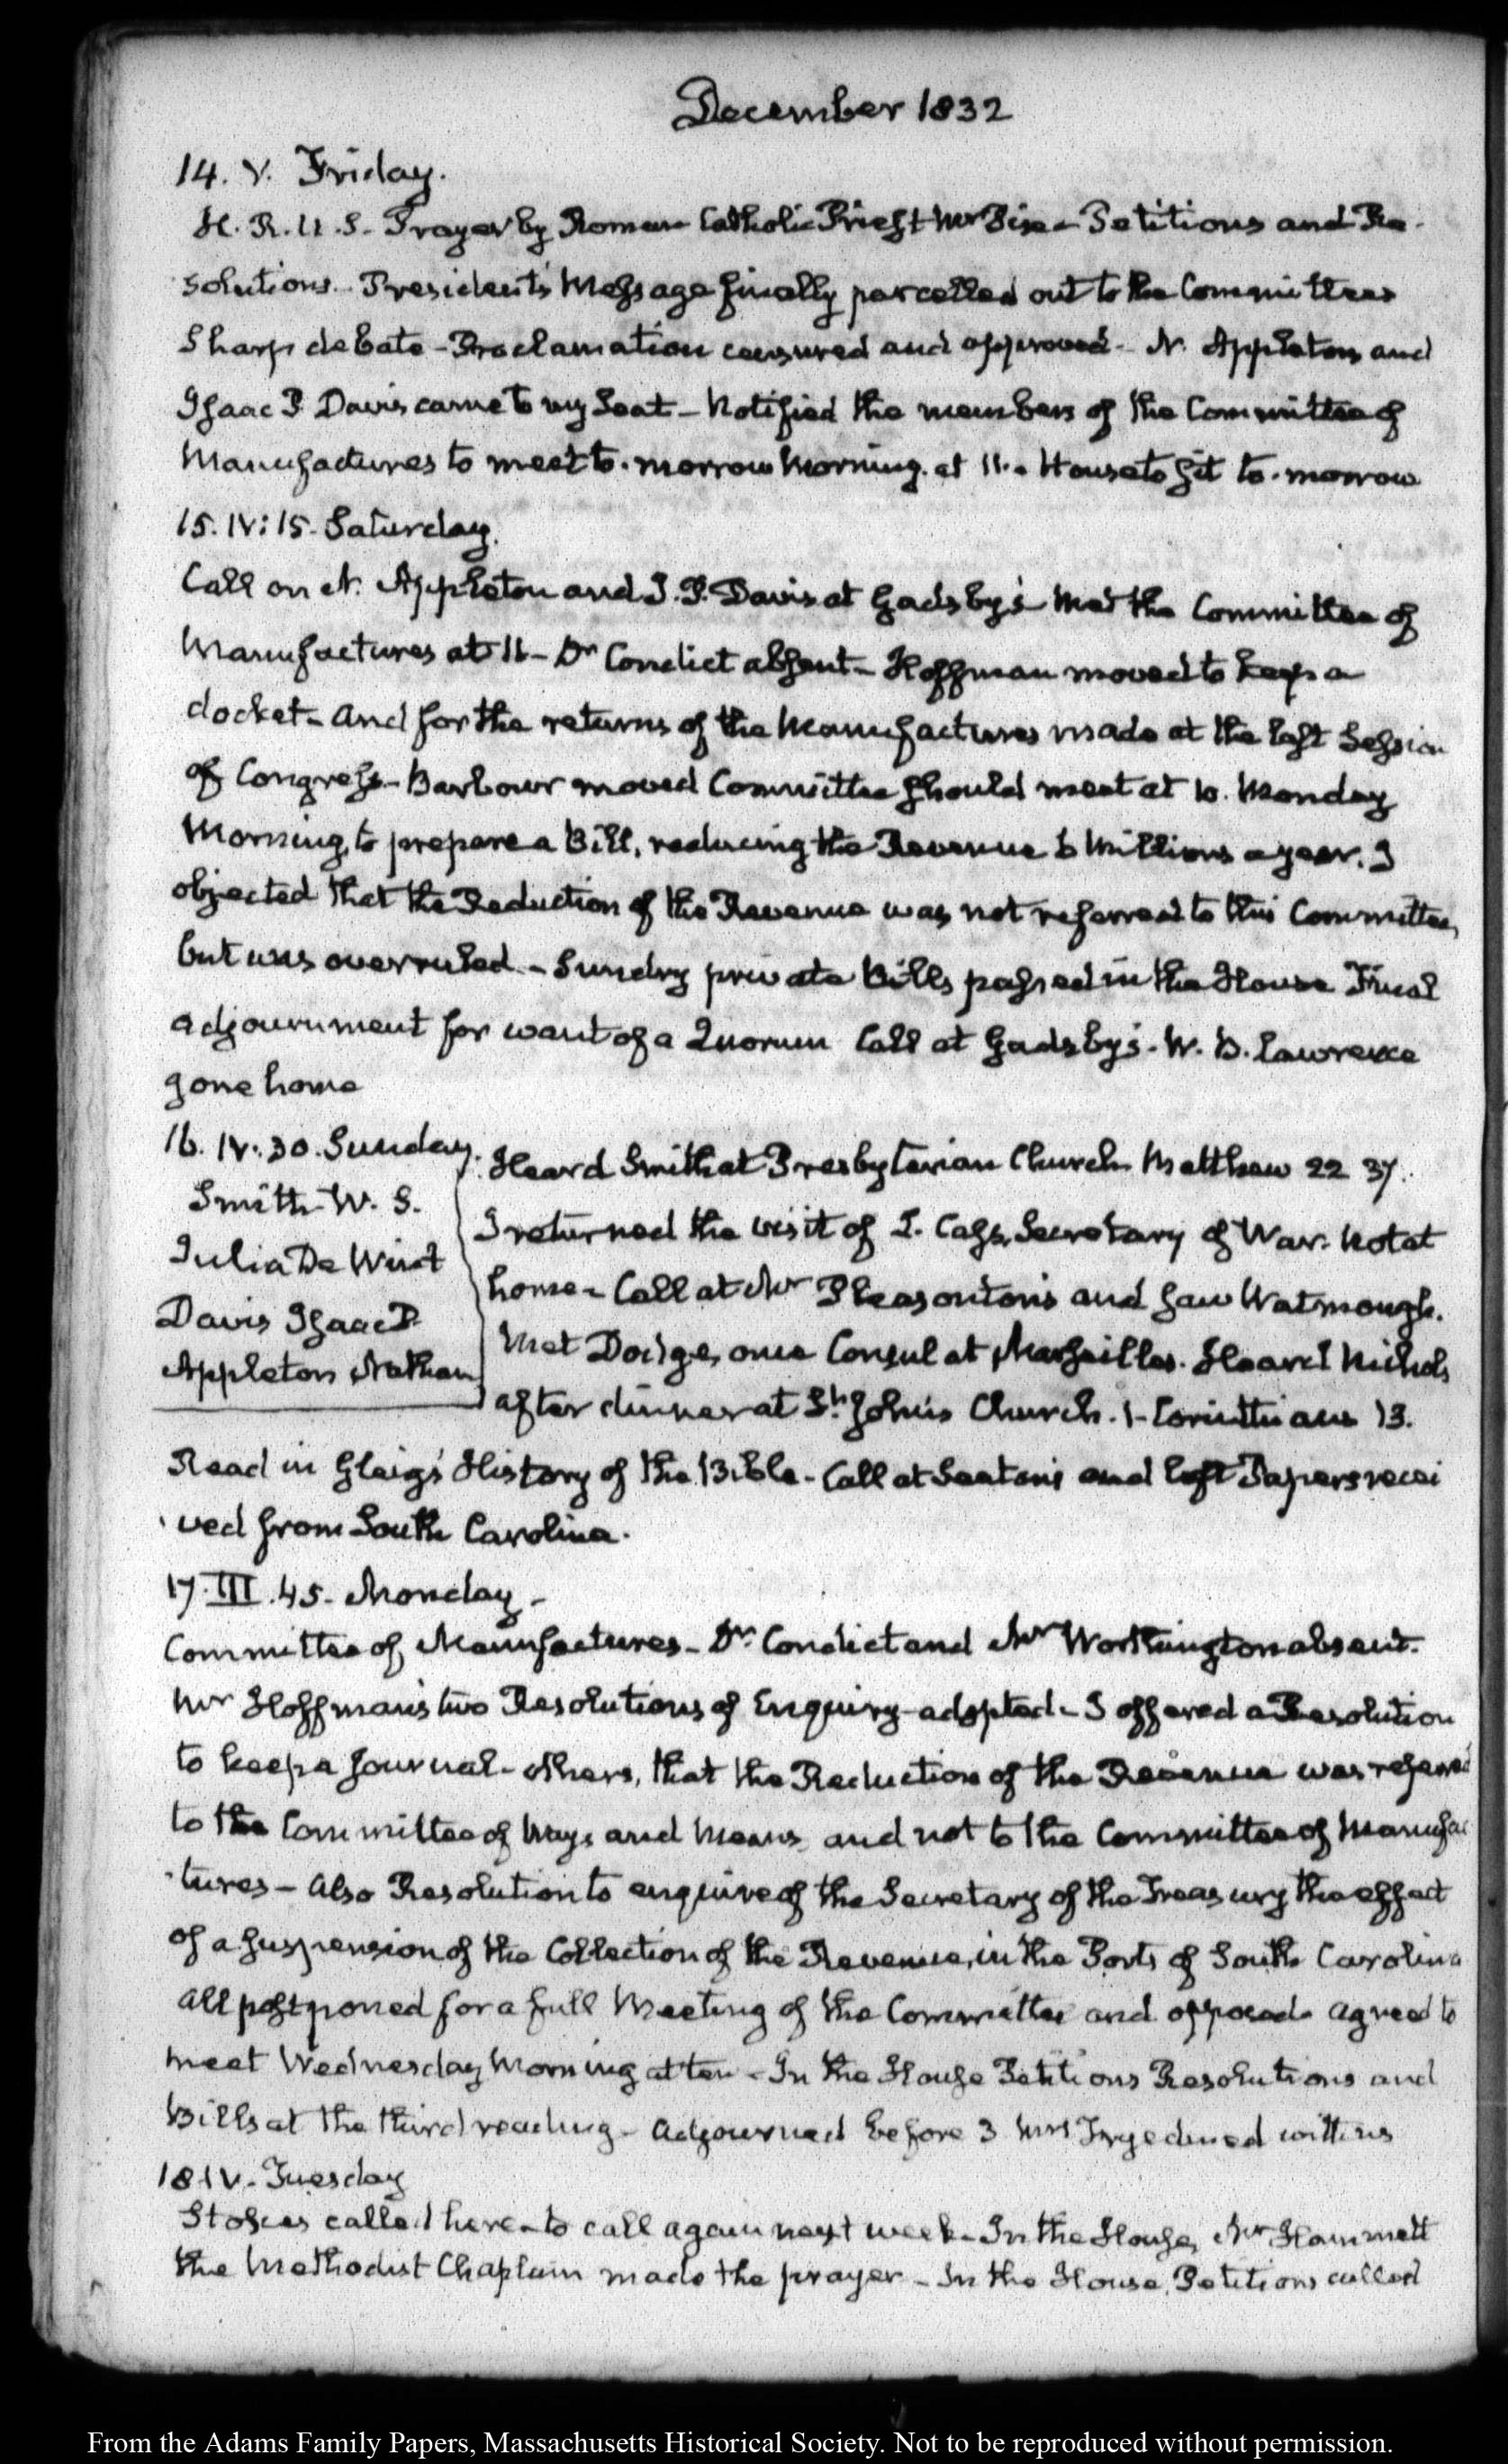 December 1832
14. V. Friday.
H. R. U. S. Prayer by Roman Catholic Priest Mr Pise - Petitions and Re-
solutions. President's Message finally parcelled out to the Committees
Sharp debate - Proclamation censured and approved - N. Appleton and
Isaac P. Davis came to my Seat - Notified the members of the Committee of
Manufactures to meet to-morrow Morning at 11. - House to sit to-morrow
15. IV: 15. Saturday.
Call on N. Appleton and I. P. Davis at Gadsby's Met the Committee of
Manufactures at 11 - Dr Condict absent - Hoffman moved to keep a
docket - and for the returns of the Manufactures made at the last Session
of Congress - Barbour moved Committee should meet at 10. Monday
Morning, to prepare a Bill, reducing the Revenue 6 Millions a year. I
objected that the Reduction of the Revenue was not referred to this Committee,
but was overruled - Sundry private Bills passed in the House Final
adjournment for want of a Quorum Call at Gadsby's. W. B. Lawrence
gone home
16. IV. 30. Sunday.
Smith W. S.
Julia De Wint
Davis Isaac P.
Appleton Nathan
Heard Smith at Presbyterian Church Matthew 22 37.
I returned the visit of L. Cass, Secretary of War. Not at
home - Call at Mr Pleasonton's and saw Watmough.
Met Dodge, once Consul at Marseilles. Heard Nichols
after dinner at St. John's Church. 1. Corinthians 13.
Read in Gleig's History of the Bible - Call at Seaton's and left Papers recei
ved from South Carolina.
17. III. 45. Monday -
Committee of Manufactures - Dr. Condict and Mr Worthington absent.
Mr Hoffman's two Resolutions of Enquiry adopted - I offered a Resolution
to keep a Journal - others, that the Reduction of the Revenue was referred
to the Committee of Ways and Means and not to the Committee of Manufac
-tures - Also Resolution to enquire of the Secretary of the Treasury the effect
of a suspension of the Collection of the Revenue, in the Ports of South Carolina
all postponed for a full Meeting of the Committee and opposed agreed to
meet Wednesday Morning at ten - In the House Petitions Resolutions and
Bills at the third reading - Adjourned before 3 Mrs Frye dined with us
18 IV. Tuesday
called here - to call again next week - In the House, Mr Hammett
the Methodist Chaplain made the prayer - In the House, Petitions called
From the Adams Family Papers, Massachusetts Historical Society. Not to be reproduced without permission.